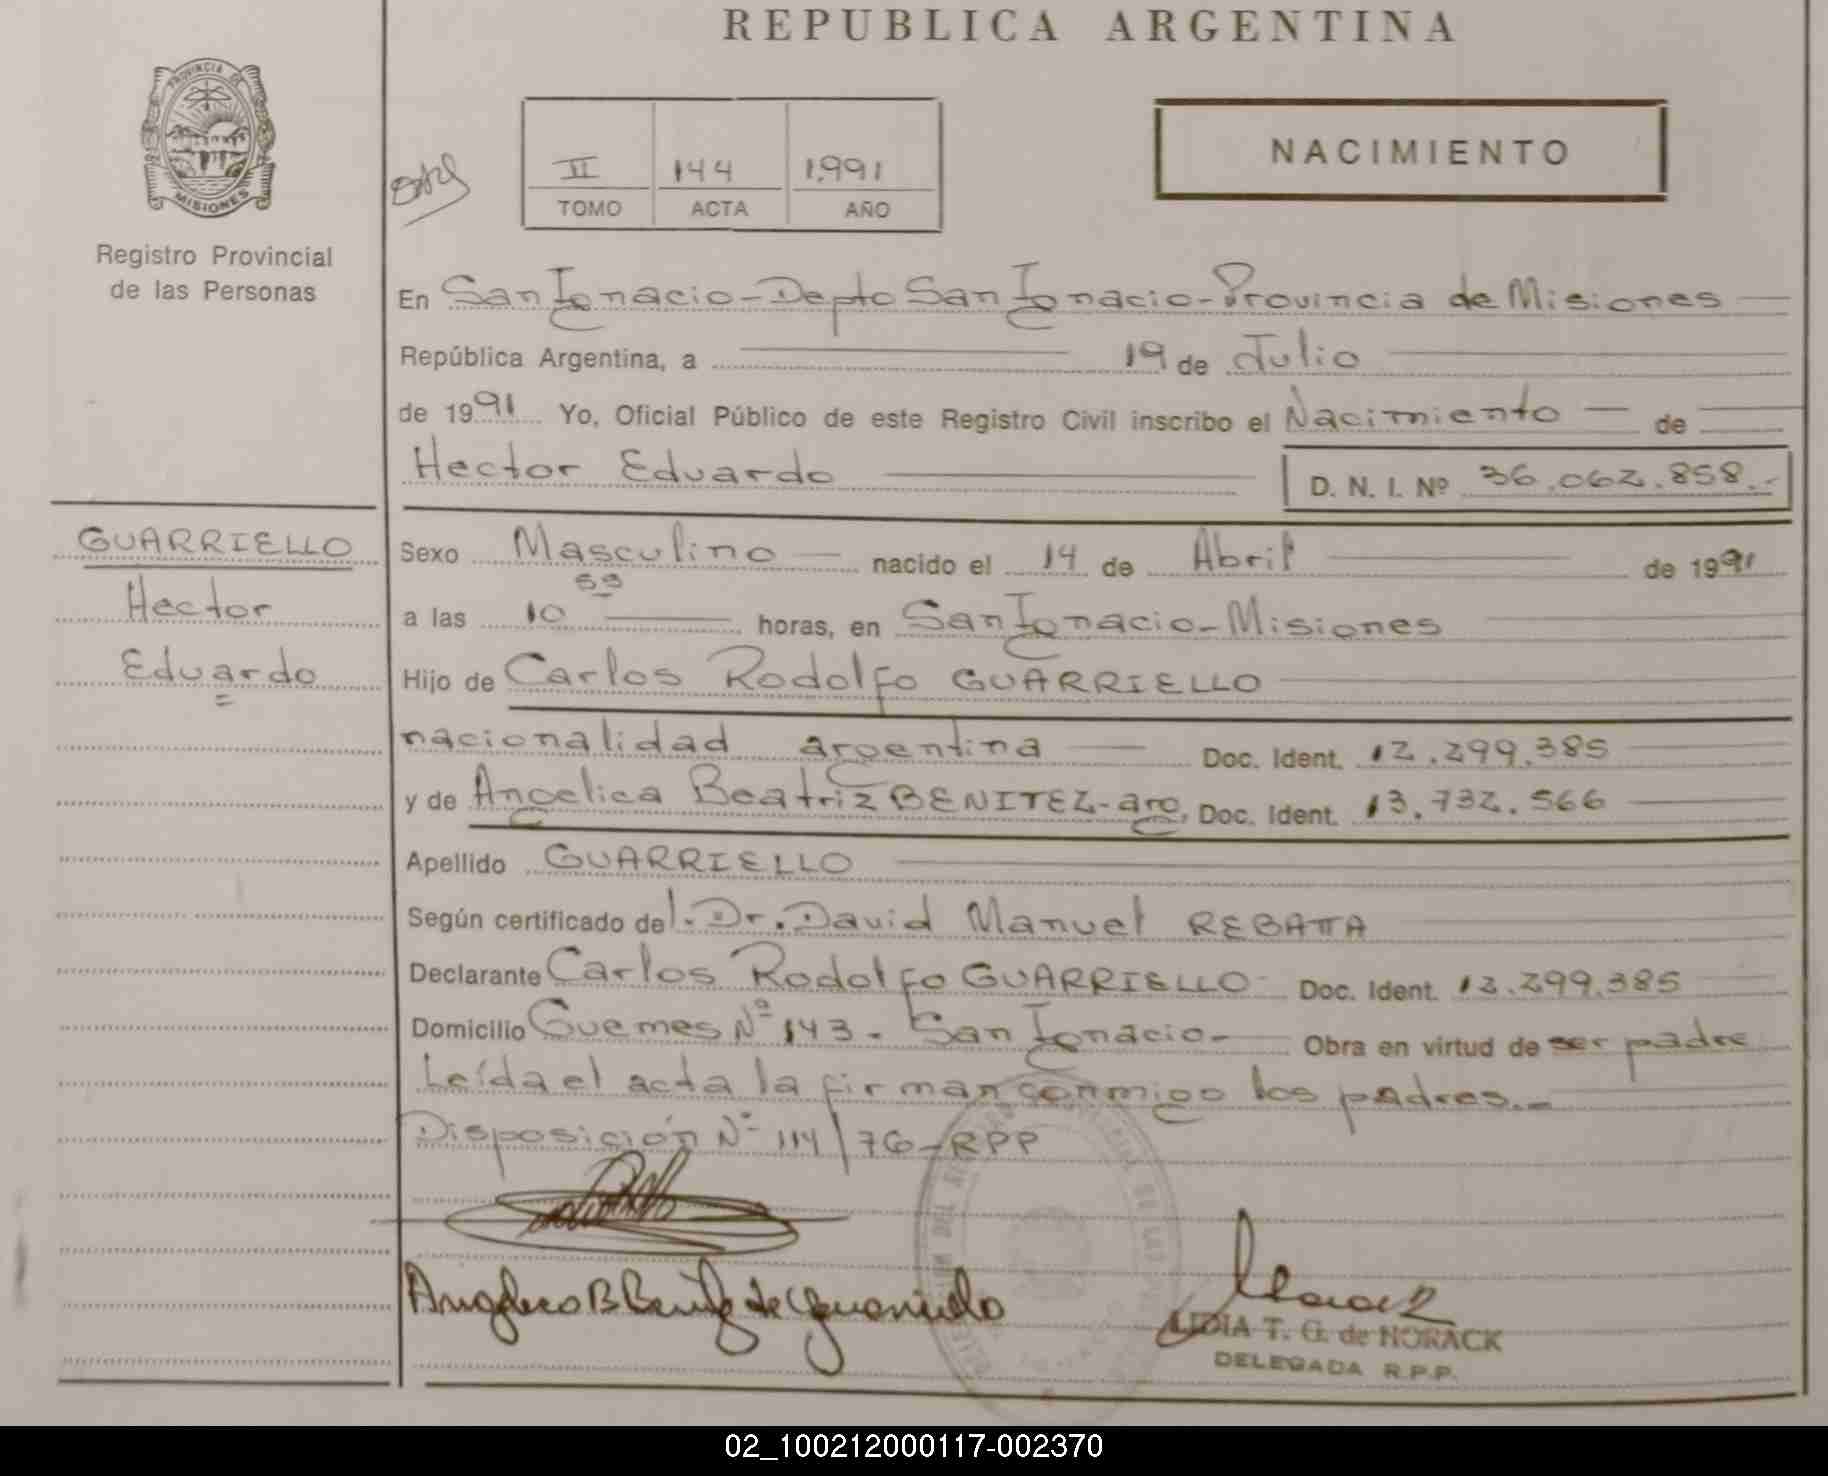 REPUBLICA ARGENTINA
PROVINCIA DE
MISIONES
Registro Provincial
de las Personas
II 144 1.991
TOMO ACTA AÑO
NACIMIENTO
En San Ignacio - Depto San Ignacio - Provincia de Misiones
República Argentina, a 19 de Julio
de 1991 Yo, Oficial Público de este Registro Civil inscribo el Nacimiento de
Hector Eduardo D. N. I. Nº 36.062.858.-
GUARRIELLO
Hector
Eduardo
Sexo Masculino nacido el 14 de Abril de 1991
a las 10 55 horas, en San Ignacio - Misiones
Hijo de Carlos Rodolfo GUARRIELLO
nacionalidad argentina Doc. Ident. 12.299.385
y de Angelica Beatriz BENITEZ - arg, Doc. Ident. 13.732.566
Apellido GUARRIELLO
Según certificado del. Dr. David Manuel REBATTA
Declarante Carlos Rodolfo GUARRIELLO Doc. Ident. 12.299.385
Domicilio Guemes Nº 143 - San Ignacio - Obra en virtud de ser padre
Leída el acta la firman conmigo los padres.-
Disposición Nº 114/76 - RPP
LIDIA T. G. de NORACK
DELEGADA R.P.P.
02_100212000117-002370